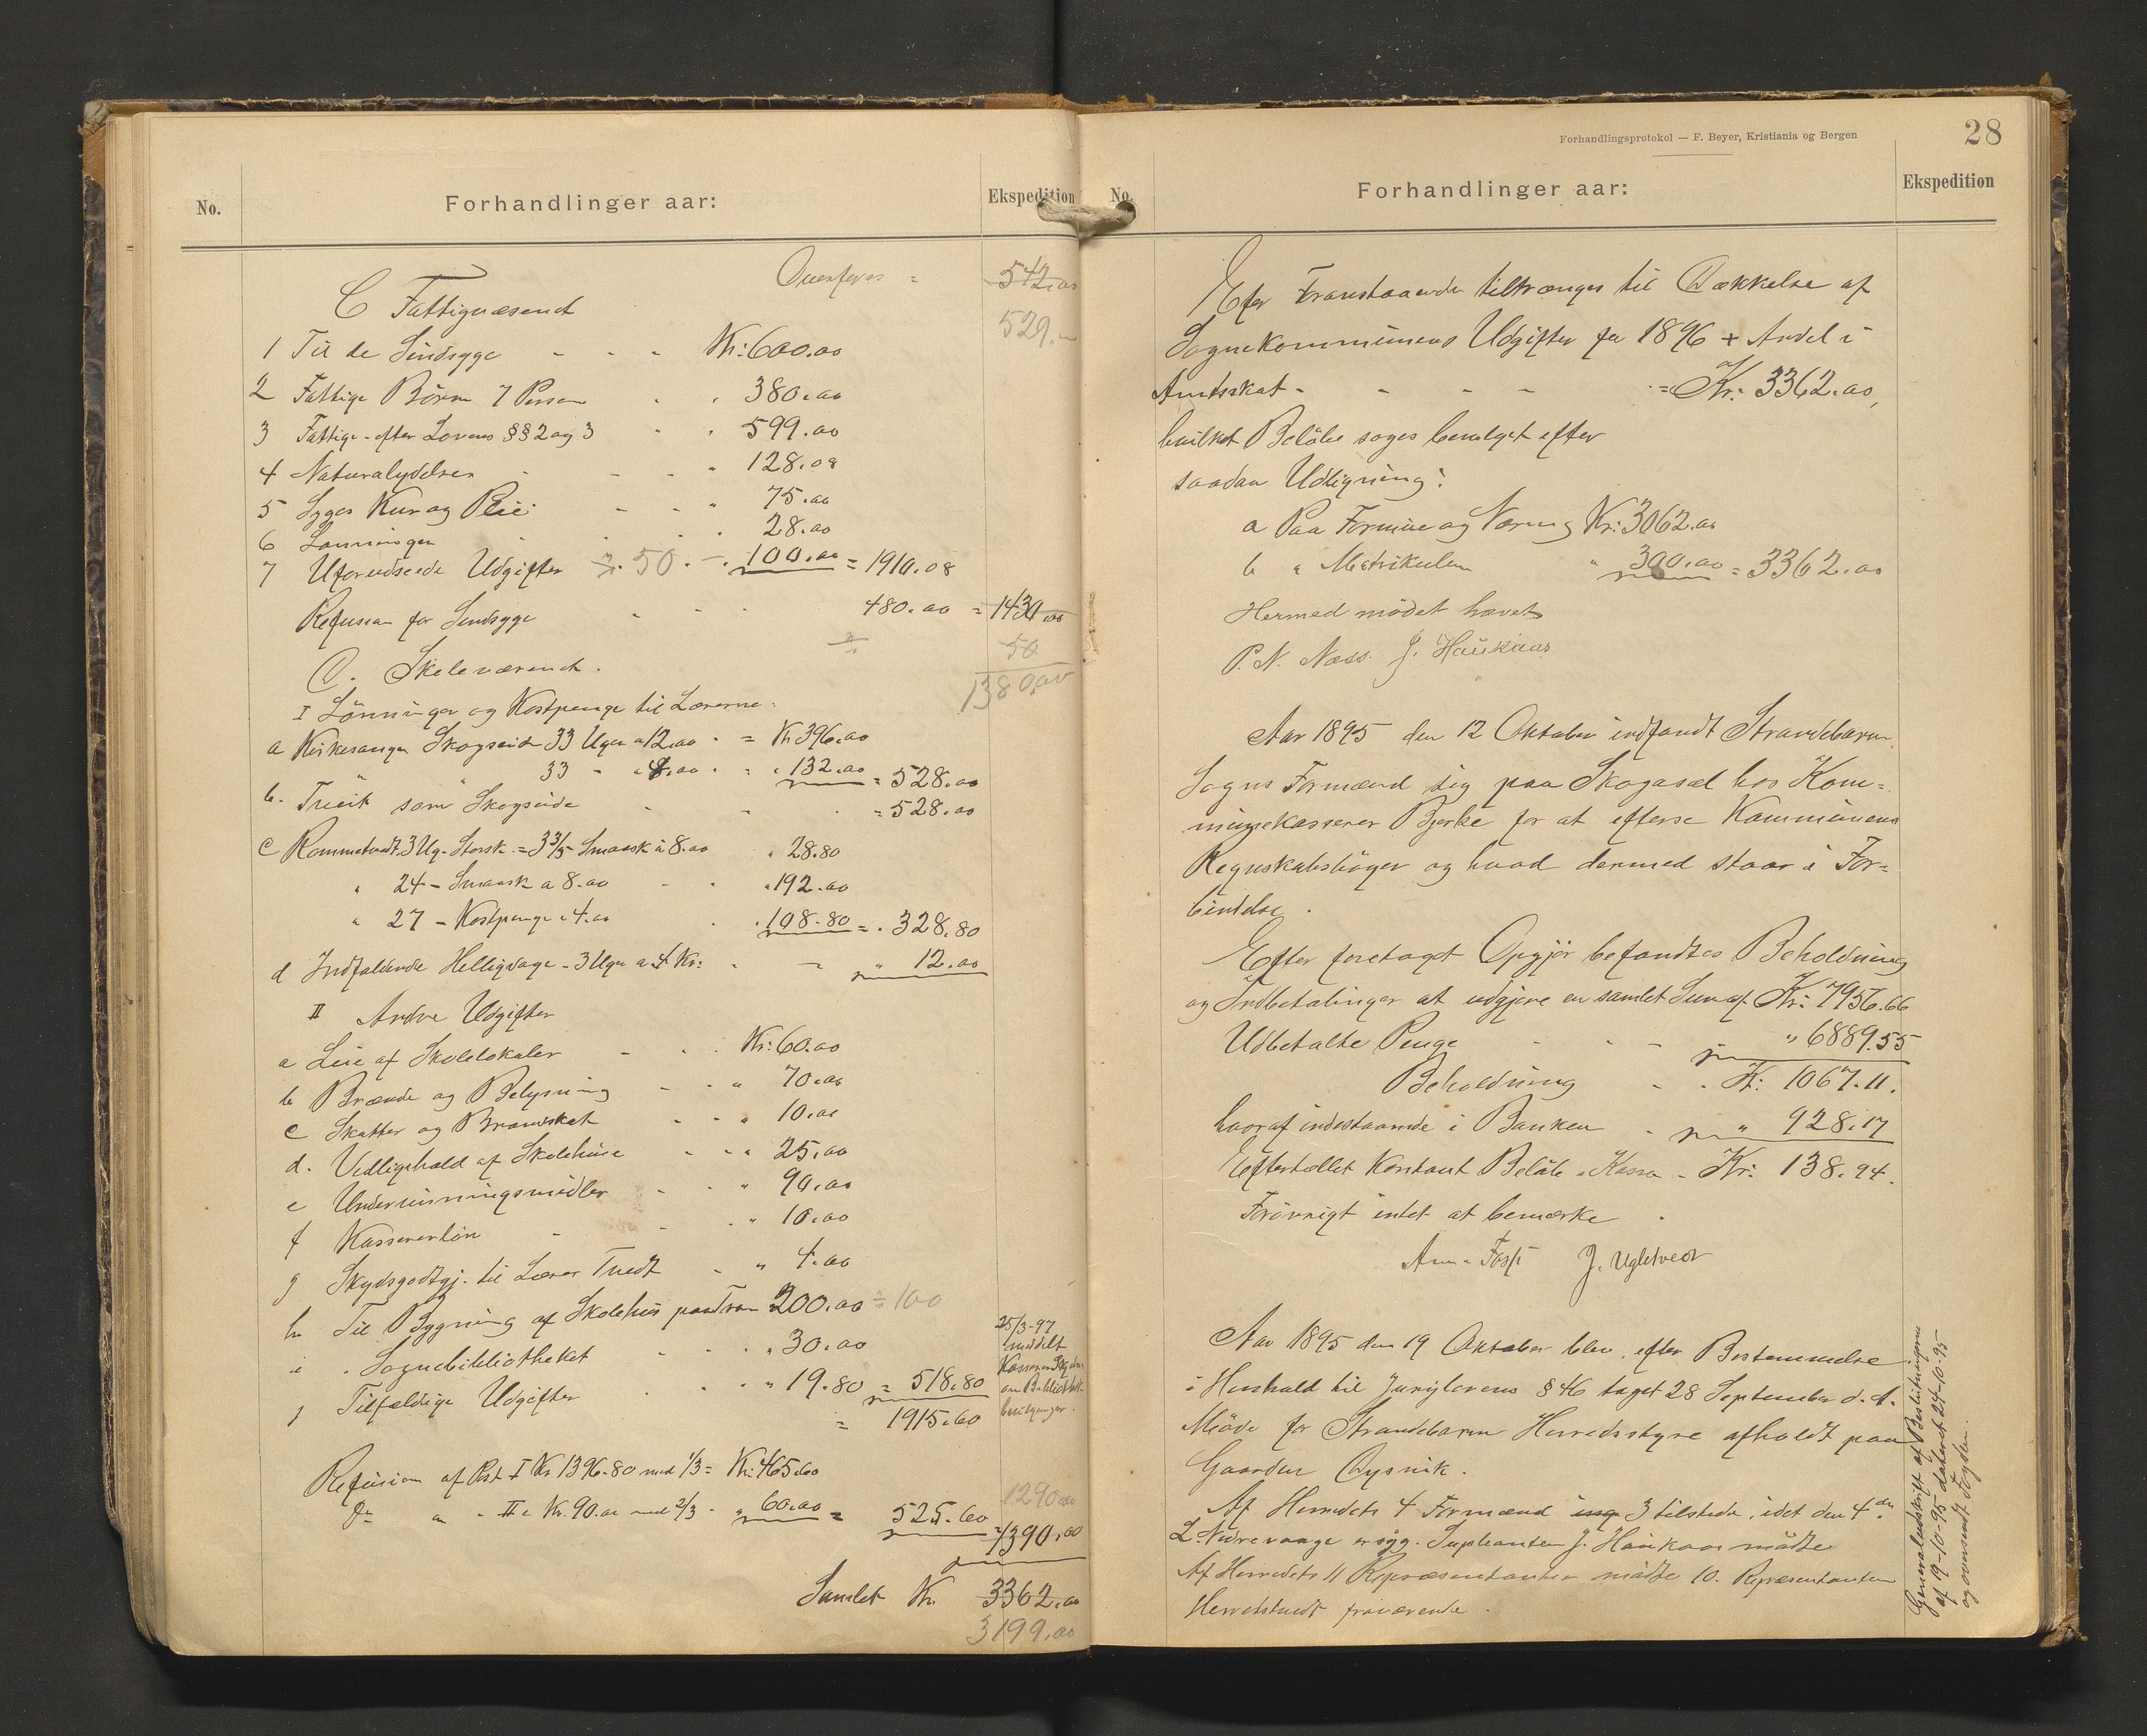 No.
Forhandlinger aar:
Ekspedition
Overføres = 542.00
529.-
C Fattigvæsenet
1 Til de Sindsyge - - - Kr: 600.00
2 Fattige Børn 7 Person - " 380.00
3 Fattige efter Lovens §§ 2 og 3 " " 599.00
4 Naturalydelser - - - " 128.08
5 Syges Kur og Pleie - - " 75.00
6 Lønninger " 28.00
7 Uforudseede Udgifter ÷ 50. - 100.00 = 1910.08
Refusion for Sindsyge - - - 480.00 = 1430.00
50
1380.00
D. Skolevæsenet.
I Lønninger og Kostpenge til Lærerne.
a Kirkesanger Skogseide 33 Uger a 12.00 = Kr 396.00
" " 33 - a 4.00 " 132.00 = 528.00
b. Tveit som Skogseide - - = 528.00
c Rommetvedt. 3 Ug. Storsk. = 3 3/5 Smaask à 8.00 " 28.80
" 24 - Smaask a 8.00 - " 192.00
" 27 - Kostpenge a 4.00 " 108.80 = 328.80
d Indfaldende Helligdage - 3 Uger a 4 Kr: - - " 12.00
II Andre Udgifter
a Leie af Skolelokaler - - Kr: 60.00
b Brænde og Belysning - - " 70.00
c Skatter og Brandskat - - " 10.00
d. Vedligehold af Skolehuse - - " 25.00
e Undervisningsmidler - - " 90.00
f Kassererløn - - " 10.00
g Skydsgodtgj. til Lærer Tvedt - " 4.00
h Til Bygning af Skolehus paa 200.00 ÷ 100
i " Sognebibliotheket - - " 30.00
j Tilfældige Udgifter - - " 19.80 = 518.80
= 1915.60
25/3-97
meddelt
Kasserer
om Bibliothek
bevilgninger.
Refusion af Post I Kr 1396.80 med 1/3 = Kr: 465.60
" " II e Kr. 90.00 med 2/3 - " 60.00 = 525.60
1290.00
= 1390.00
Samlet Kr. 3362.00
3199.00
Forhandlingsprotokol — F. Beyer, Kristiania og Bergen
28
No.
Forhandlinger aar:
Ekspedition
Efter Foranstaaende tiltrænges til Dækkelse af
Sognekommunens Udgifter for 1896 + Andel i
Amtsskat - - - - = Kr: 3362.00,
hvilket Beløb søges bevilget efter
saadan Udligning:
a Paa Formue og Næring Kr: 3062.00
b " Matrikulen " 300.00 = 3362.00
Hermed mødet hævet
P. N. Næss. J. Haukaas
Aar 1895 den 12 Oktober indfandt Strandebarm
Sogns Formænd sig paa Skogasæl hos Kom-
munekasserer Bjerke for at efterse Kommunens
Regnskabsbøger og hvad dermed staar i For-
bindelse.
Efter foretaget Opgjør befandtes Beholdning
og Indbetalinger at udgjøre en samlet Sum af Kr: 7956.66
Udbetalte Penge - - - " 6889.55
Beholdning - - Kr: 1067.11.
hvoraf indestaaende i Banken - " 928.17
Eftertællet Kontant Beløb i Kassa - Kr: 138.94.
Forøvrigt intet at bemærke.
J. Ugletvedt
Aar 1895 den 19 Oktober blev, efter Bestemmelse
i Henhold til Jurylovens § 46 taget 28 September d. A.
Møde for Strandebarm Herredsstyre afholdt paa
Gaarden Dysvik.
Af Herredets 4 Formænd 3 tilstede, idet den 4de
L. Nedrevaage er syg. Suplianten J. Haukaas mødte
Af Herredets 11 Repræsentanter mødte 10. Repræsentanten
Herretstvedt fraværende.
Generaludskrift af Beslutningerne
af 19-10-95 dateret 24-10-95
og oversendt Fogden.